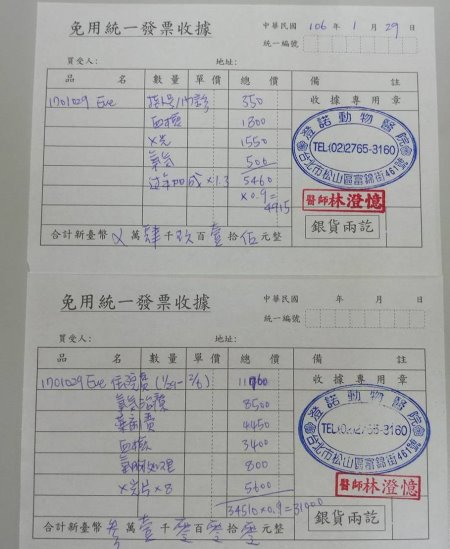 免用統一發票收據
中華民國 106 年 1 月 29 日
統一編號
買受人： 地址：
品名 數量 單價 總價 備註
1701029 Eve 350 收據專用章
血檢 1800
X光 1550
氧氣 500
過年加成 ×1.3 5460
×0.9=
4915
澄諾動物醫院
TEL:(02)2765-3160
台北市松山區富錦街461號
醫師 林澄憶
合計新臺幣 萬肆千玖百壹拾伍元整
銀貨兩訖
免用統一發票收據
中華民國 年 月 日
統一編號
買受人： 地址：
品名 數量 單價 總價 備註
1701029 Eve 住院費 (1/29- 2/6) 收據專用章
氧氣治療 8500
藥費 4450
血檢 3400
處理 800
X光片×8 5600
34510×0.9=31000
澄諾動物醫院
TEL:(02)2765-3160
台北市松山區富錦街461號
醫師 林澄憶
合計新臺幣 參萬壹千零百零拾零元整
銀貨兩訖